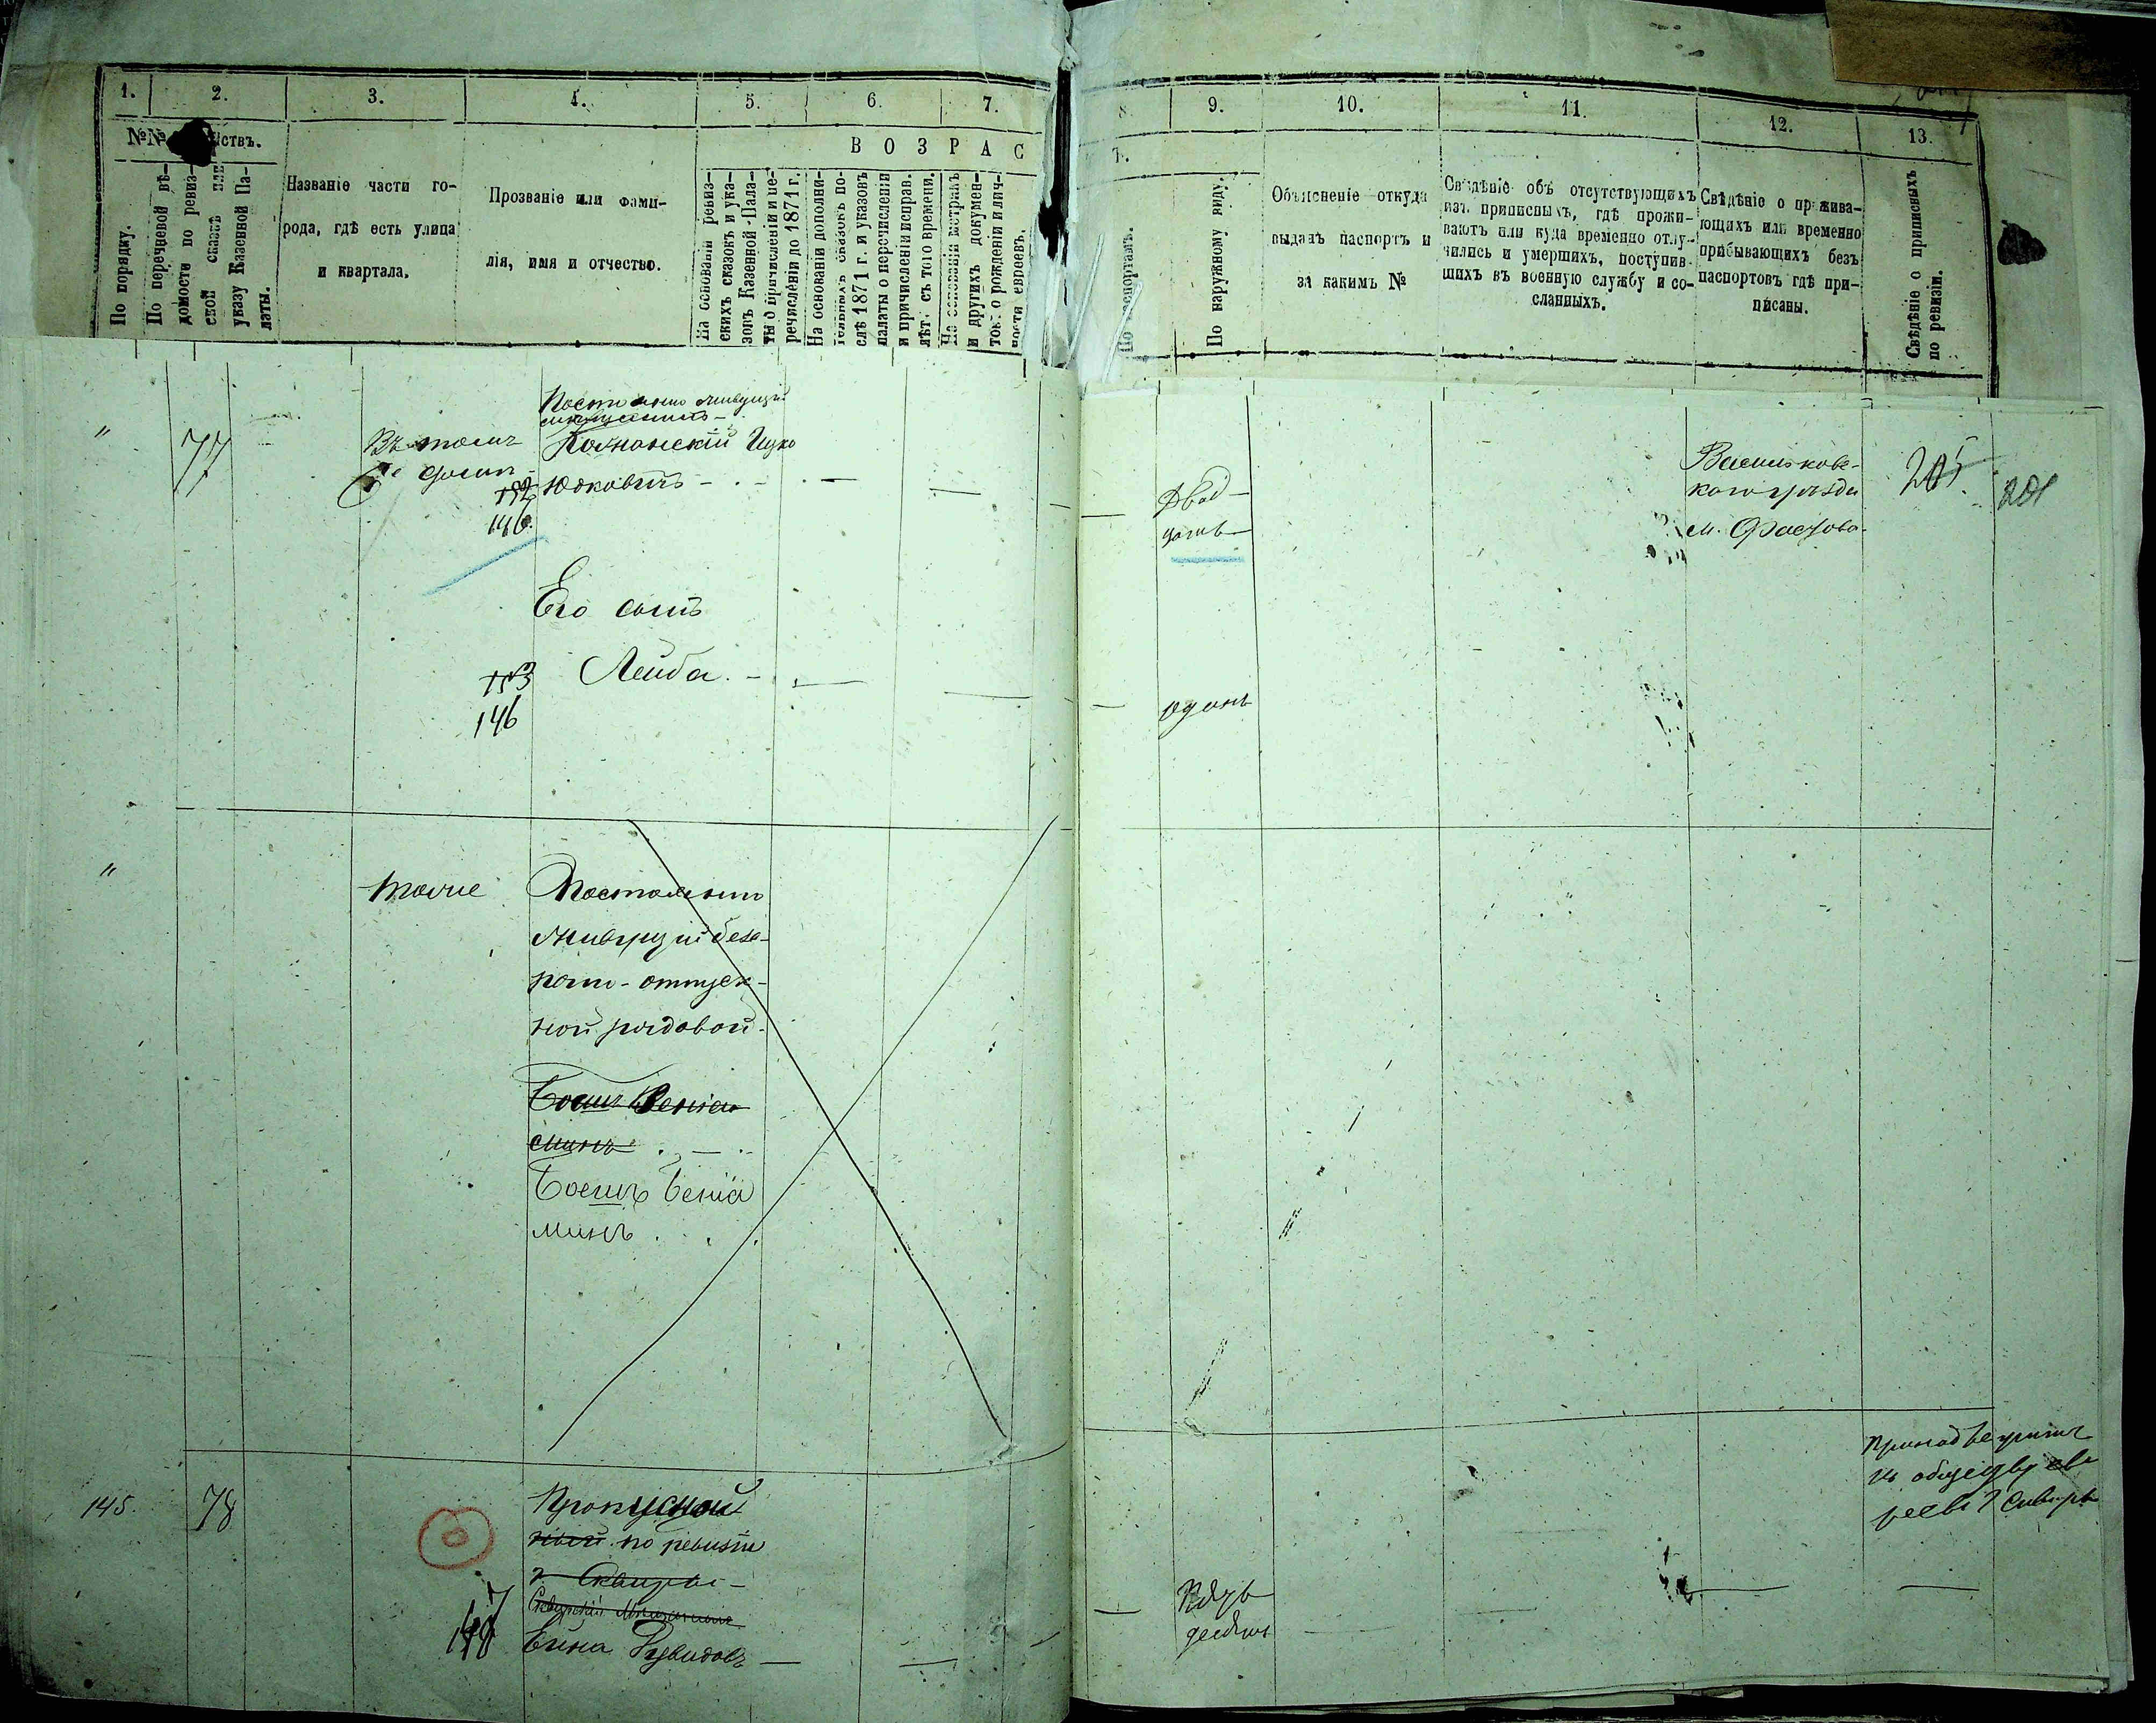 1. 2. 3. 4. 5. 6. 7.
№№ ствъ.
ВОЗРАС
По порядку.
По перечневой вѣ-
домости по ревиз-
ской сказкѣ или
указу Казенной Па-
латы.
Названіе части го-
рода, гдѣ есть улица
и квартала.
Прозваніе или фами-
лія, имя и отчество.
На основаніи ревиз-
скихъ сказокъ и ука-
зовъ Казенной Пала-
ты о причисленіи и пе-
речисленіи до 1871 г.
На основаніи дополни-
тельныхъ сказокъ по-
слѣ 1871 г. и указовъ
палаты о перечисленіи
и причисленіи исправ.
лѣтъ съ того времени.
На основаніи метрикъ
и другихъ докумен-
товъ о рожденіи и лич-
ности евреевъ.
8. 9. 10. 11. 12. 13.
Т.
По паспортамъ.
По наружному виду.
Объясненіе откуда
выданъ паспортъ и
за какимъ №
Свѣдѣніе объ отсутствующихъ
изъ приписныхъ, гдѣ прожи-
ваютъ или куда временно отлу-
чились и умершихъ, поступив-
шихъ въ военную службу и со-
сланныхъ.
Свѣдѣніе о прожива-
ющихъ или временно
прибывающихъ безъ
паспортовъ гдѣ при-
писаны.
Свѣдѣніе о приписныхъ
по ревизіи.
" 77
Въ томъ
же домѣ
152
146
Постоянно живущій
Познанскій Ицко
Юдковичъ
Двад-
цать
Васильковс-
каго уѣзда
м. Фастова
205
201
Его сынъ
153 Лейба.
146
одинъ
" тоже
Постоянно
живущій безс-
рочно-отпуск-
ной рядовой
Боемъ Веніа
минъ
Боемъ Беніа
минъ
145. 78
Пропускной
по ревизіи
г. Сквиры
Сквирскій Мѣщанинъ
Ейна Рувидовъ
Пять
десять
къ обществу ев
реевъ г. Сквиры